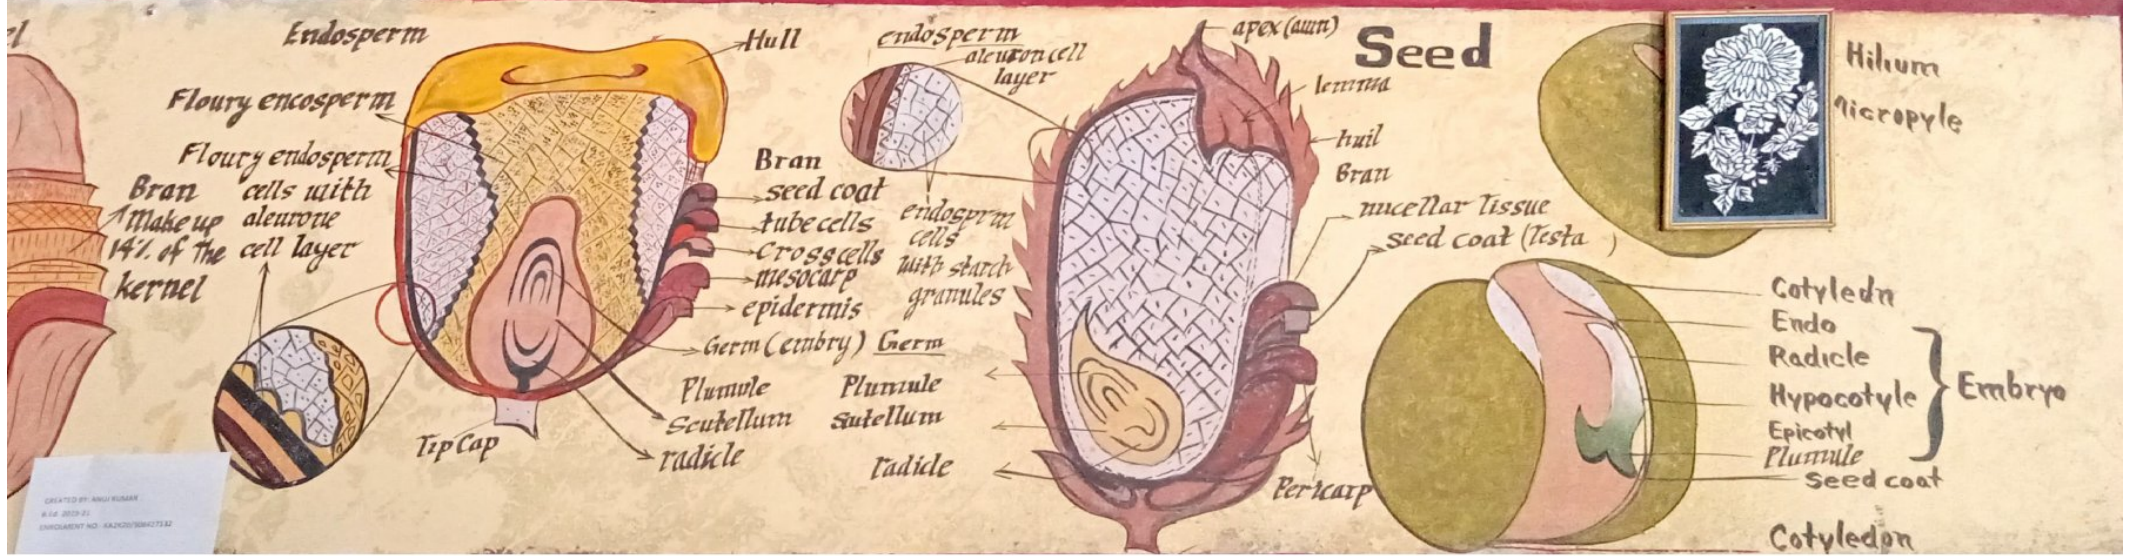 el
Endosperm
Floury encosperm
Floury endosperm
cells with
aleurone
cell layer
Bran
Make up
14% of the
kernel
Tip Cap
Hull
Bran
seed coat
tube cells
Cross cells
mesocarp
epidermis
Germ (embry)
Plumule
Scutellum
radicle
endosperm
aleuron cell
layer
endosperm
cells
with starch
granules
Germ
Plumule
Scutellum
radicle
apex (awn)
lemma
huil
Bran
nucellar Tissue
seed coat (Testa )
Pericarp
Seed
Hilium
Micropyle
Cotyledn
Endo
Radicle
Hypocotyle
Epicotyl
Plumule
Embryo
Seed coat
Cotyledon
CREATED BY: ANUJ KUMAR
B.Ed. 2019-21